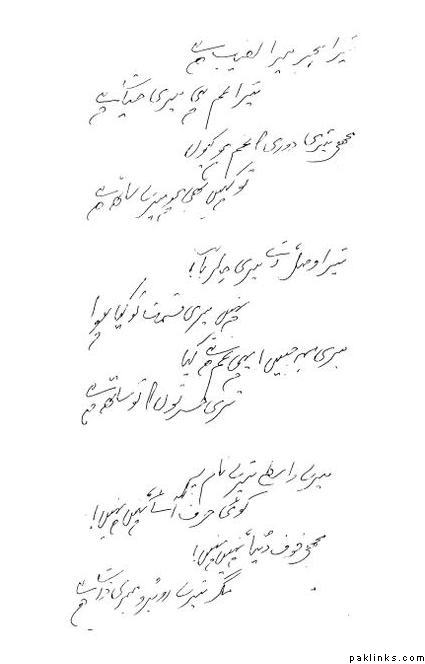 تیرا ہجر میرا نصیب ہے
تیرا غم ہی میری حیات ہے
مجھے تیری دوری کا غم ہو کیوں
تو کہیں بھی ہو میرے ساتھ ہے
تیرا وصل
نہیں میری قسمت تو کیا ہوا
میری مہ جبیں یہی غم ہے کیا
تری حسرتوں کا تو ساتھ ہے
میرے واسطے تیرے نام پہ
کوئی حرف آئے نہیں نہیں!
مجھے خوف دنیا نہیں نہیں!
مگر تیرے روبرو میری ذات ہے
paklinks.com